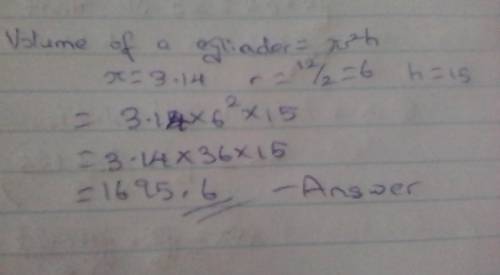 Volume of a cylinder = πr²h
π = 3.14 r = 12/2 = 6 h = 15
= 3.14 × 6² × 15
= 3.14 × 36 × 15
= 1695.6 - Answer